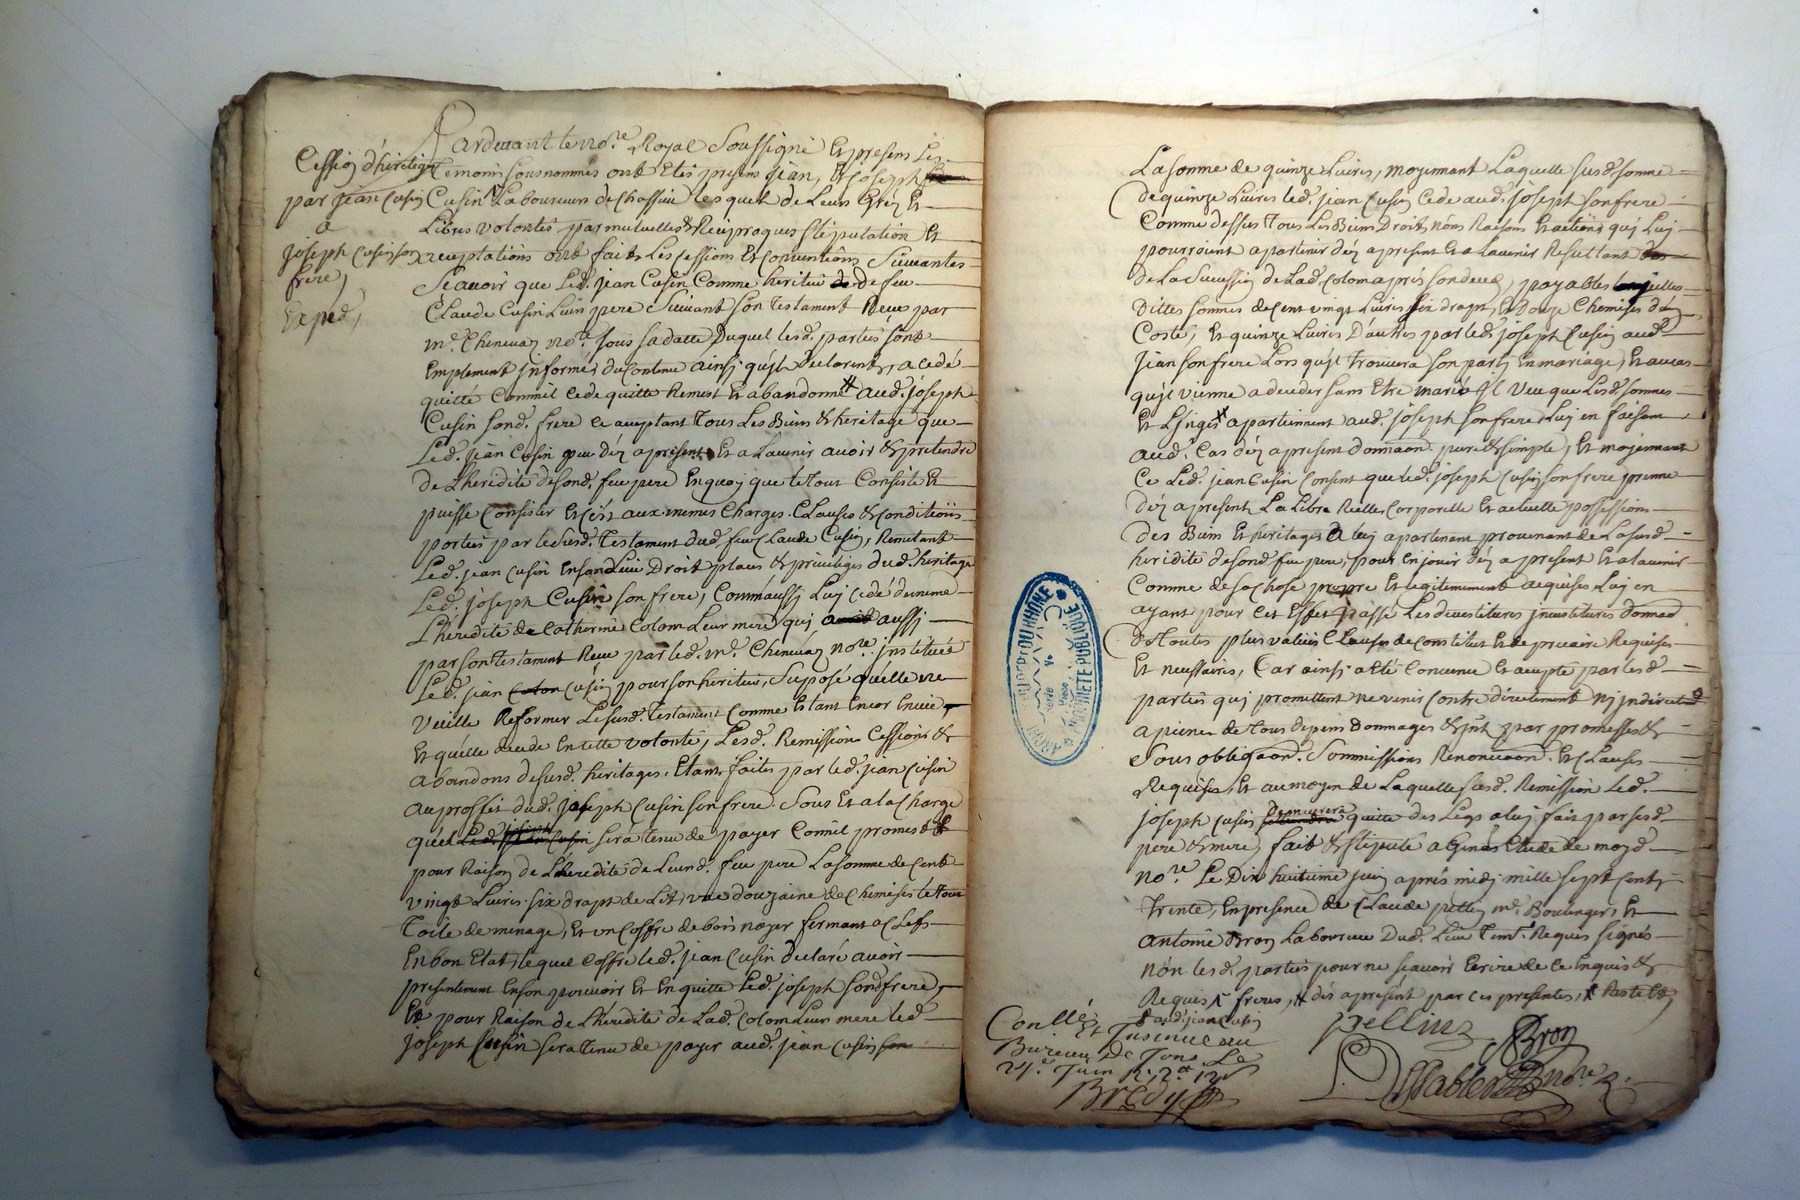 Cession d'heritage
par Jean Cusin
a
joseph Cusin son
frere,
Exped,
Pardevant le no.re Royal Soussigné Et presens Les
Temoins sousnommés ont Etés presens jean, & joseph
Cusin Laboureurs de Chassieu lesquels de Leurs Grez Et
Libres volontés par mutuelles & Reciproques stipulation Et
acceptations ont faits Les Cessions Et Conventions Suivantes
Scavoir que Led. jean Cusin Comme heritier de feu
Claude Cusin Leur pere Suivant son Testament Receu par
m.e Chenevaz no.re sous sa datte Duquel lesd. parties sont
Emplement jnformés du Contenu ainsi qu'jls declarent, a cedé
quitté Comm'il Cede quitte Remet Et abandonne # aud. joseph
Cusin sond. frere Ce aceptant Tous Les Biens & heritage que
Led. jean Cusin peu déz a present Et a Lavenir avoir & pretendre
de Lheredité de sond. feu pere En quoy que le Tout Consiste Et
puisse Consister Et C'ést aux memes Charges Clauses & Conditions
portées par le susd. Testament dud. feu Claude Cusin, Remettant
Led. jean Cusin En son Lieu Droit place & privileges dud. heritage
Led. joseph Cusin son frere, Comm'aussj Luj cede de meme
L'heredité de Catherine Colom Leur mere quj aussi
par son testament Receu par led. m.e Chenevaz no.re jnstitué
Led. jean Cusin pour son heritier, Suposé qu'elle ne
veuille Reformer Le susd. Testament Comme Etant Encor Envie,
Et qu'elle decede En cette volonté, Lesd. Remission Cessions &
abandons desusd. heritages Etant faites par led. jean Cusin
au proffit dud. joseph Cusin son frere Sous Et a la Charge
qu'el Led. joseph sera tenu de payer Comm'il promet
pour Raison de L'heredité de Leurd. feu pere La somme de Cent
vingt Livres six drapt de Lit, une douzaine de Chemises le tout
Toile de menage, Et un Coffre de bois noyer fermant a Clefs
En bon Etat, lequel Coffre led. jean Cusin declaré avoir
presentement En son pouvoir Et En quitte Led. joseph sond frere,
Et pour Raison de L'heredité de Lad. Colom Leur mere led.
joseph Cusin sera tenu de payer aud. jean Cusin
La somme de quinze Livres, moyennant Laquelle susd. somme
de quinze Livres led. jean Cusin Cede aud. joseph son frere
Comme dessus Tous Les Biens Droits noms Raisons Et actions quj Luj
pourroient apartenir déz a present Et a Lavenir Resultant
de La Succession de Lad. Colom aprés son decez, payables
Dittes sommes de Cent vingt Livres six drapts, & Douze Chemises d'un
Costé, Et quinze Livres D'autres par led. joseph Cusin aud.
Jean son frere Lors qu'jl trouvera son party En mariage, Et au cas
qu'jl vienne a deceder sans Etre marié jl veut que Lesd. sommes
Et Linges # apartiennent aud. joseph son frere Luj en faisant
aud. Cas déz a present donnaon. pure & simple, Et moyennant
Ce Led. jean Cusin Consent que led. joseph Cusin son frere prenne
Déz apresent La Libre Réelle, Corporelle Et actuelle possession
des Biens Et heritages a luj apartenant provenant de La susd.
heredité de sond. feu pere, pour En jouir déz a present Et a lavenir
Comme de sa Chose propre Et legitimement acquises Luj en
ayant pour Cet Effet passé Les devestitures jnvestitures donnaon
de Toutes plus values Clauses de Constitut Et de precaire Requises
Et necessaires, Car ainsi a été Convenu Et accepté par lesd.
parties quj promettent ne venir Contre directement Nj jndirectem.t
a peine de tous depens Dommages & jnt. par promesses &
Sous obligaon. Soumissions Renonciaon. Et Clauses
Requises, Et au moyen de Laquelle susd. Remission Led.
joseph Cusin Demeurera quitte des Legs a luj fait par sesd.
pere & mere, fait & stipulé a Genas Etude de moyd.
no.re Le Dix huitieme juin aprés midy mille sept Cents
Trente, En presence de Claude pellin m.e Boulanger, Et
Antoine Bron Laboureur Dud. Lieu Temt. Requis signés
Non lesd. parties pour ne scavoir Ecrire de Ce Enquis &
Requis # freres, # dés a present par ces presentes, # Restet
# aud. jean Cusin
pellin
ABron
Desable no.re
Conllé
Et Insinué au
Bureau De Tons Le
21.e Juin R. 2.tt 12
Bredy
ARCHIVES DEP.les DU RHONE
PROPRIETE PUBLIQUE